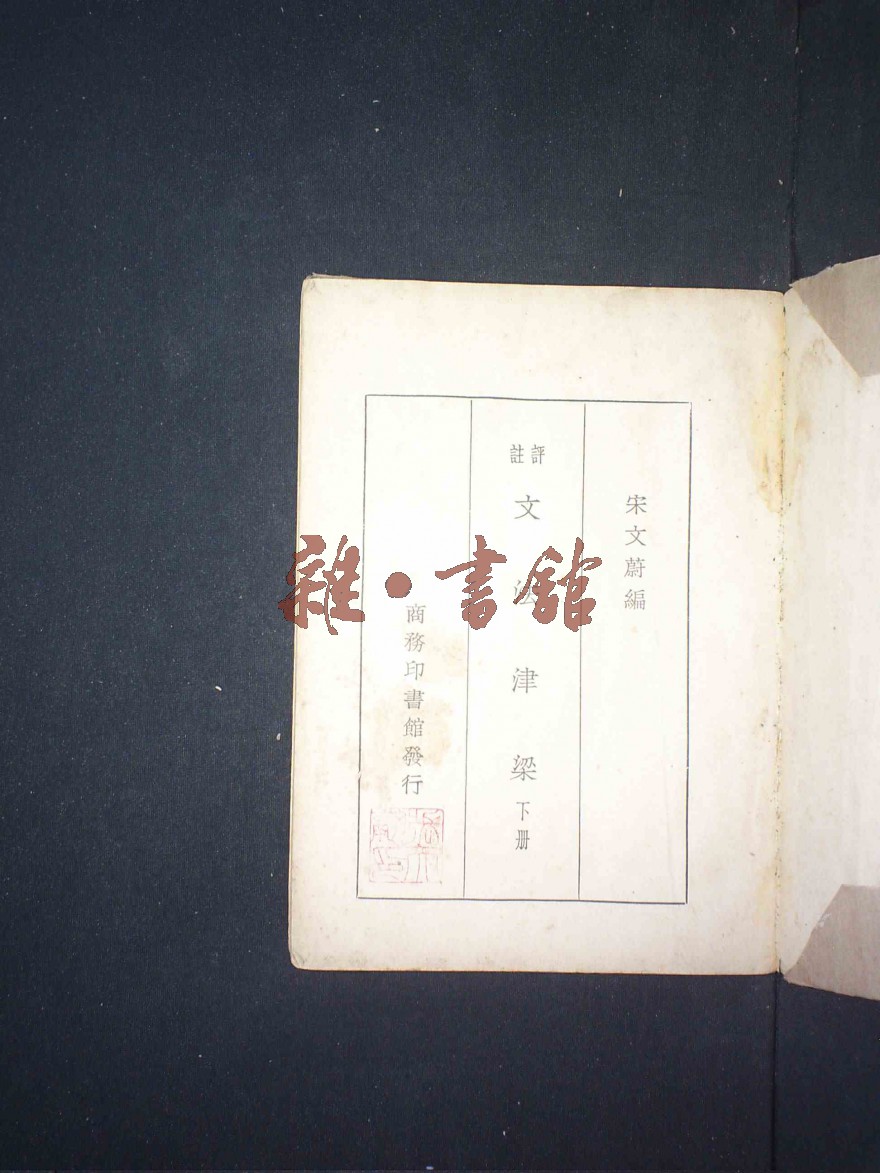 宋文蔚編
評註
文法津梁下册
商務印書館發行
雜·書館